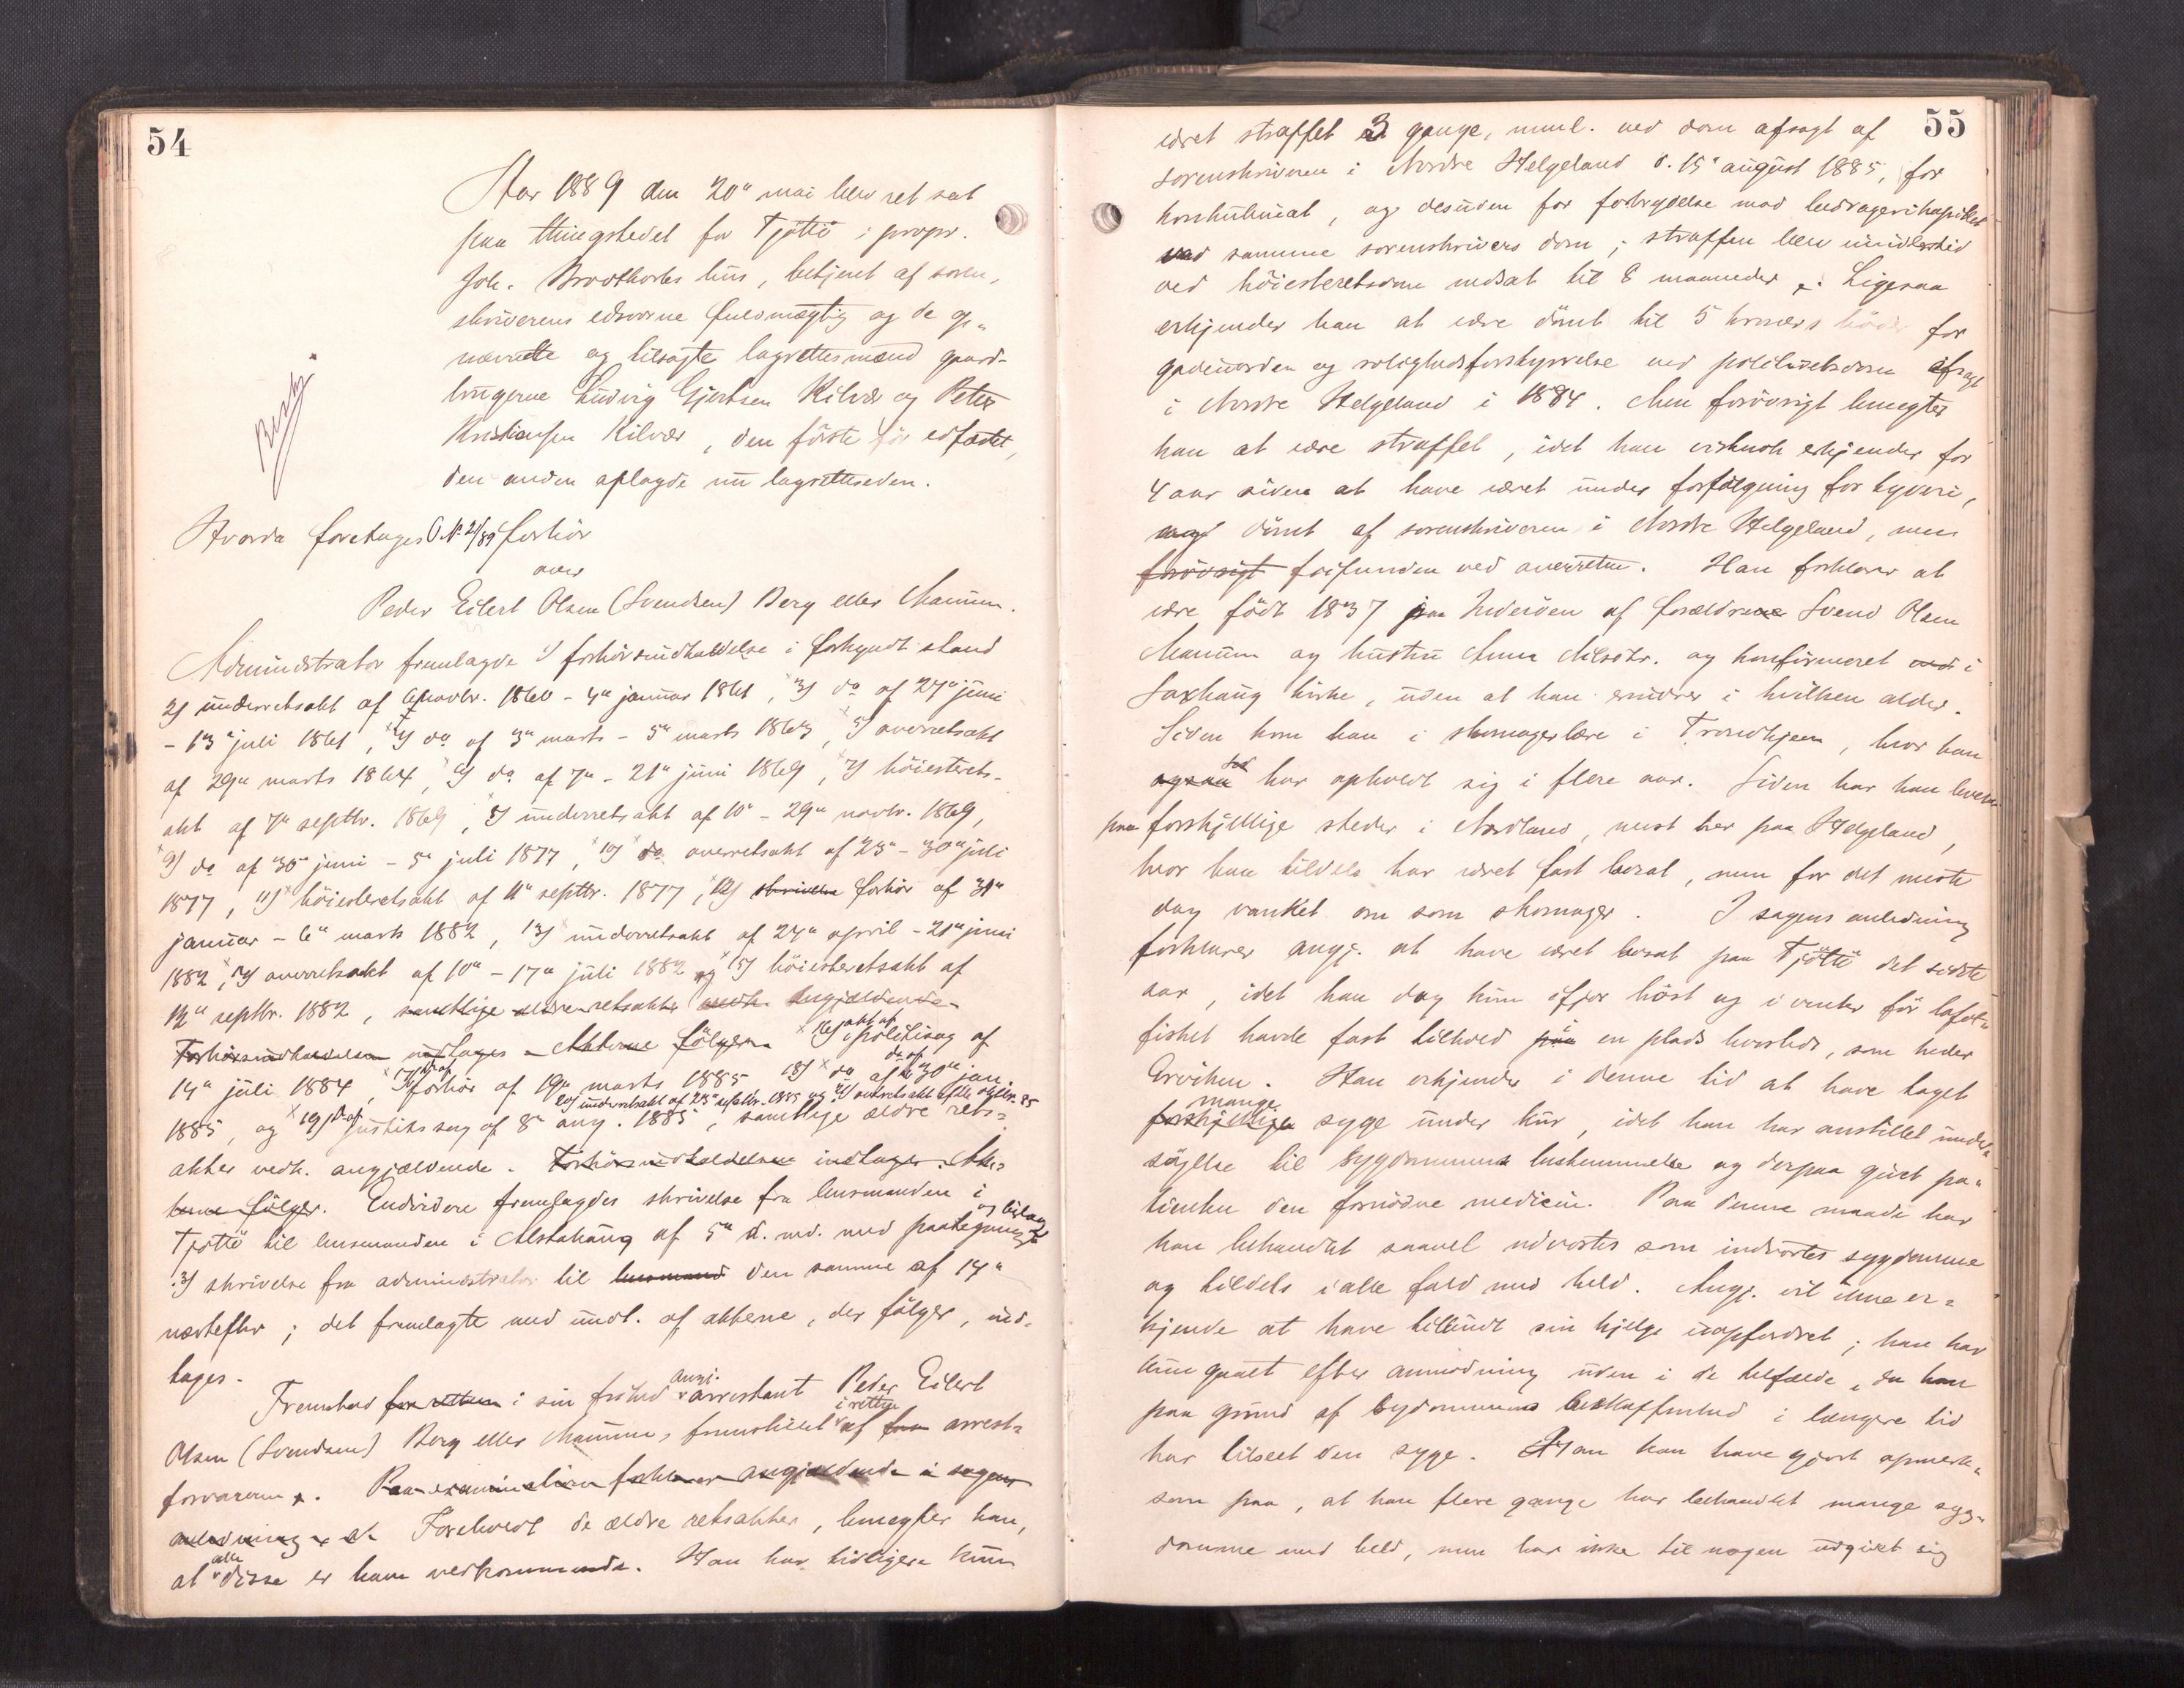 54
Aar 1889 den 20de mai blev ret sat
paa thingstedet for Tjøttø i propr.
Joh. Brodtkorbs hus, betjent af soren-
skriverens edsvorne fuldmægtig og de op-
nævnte og tilsagte lagrettesmænd gaard-
brugerne Ludvig Gjertsen Kilvær og Peter
Kristiansen Kilvær, den første før edfæstet,
den anden aflagde nu lagretteseden.
Hvorda foretages O. No 21/89 forhør
over
Peder Eilert Olsen (Svendsen) Berg eller Manum.
Administrator fremlagde 1) forhørsindkaldelse i forkyndt stand
2) underretsakt af novbr. 1860 - 4de januar 1861, 3) do af 27de juni
- 13de juli 1861, 4) do af 3de marts - 5de marts 1863, 5) overretsakt
af 29de marts 1864, 6) do af 7de - 21de juni 1869, 7) høiesterets-
akt af 7de septbr. 1869, 8) underretsakt af 10de - 29de novbr. 1869,
9) do af 30te juni - 5te juli 1877, 10) do overretsakt af 23de - 30te juli
1877, 11) høiesteretsakt af 11te septbr. 1877, 12) skrivelse forhør af 31te
januar - 6te marts 1882, 13) underretsakt af 24de april - 21de juni
1882, 14) overretsakt af 10de - 17de juli 1882 og 15) høiesteretsakt af
12te septbr. 1882, samtlige ældre retsakter vedk. angjældende
Forhørsindkaldelsen indtages - Akterne følger. 16) akt af politisag af
14de juli 1884, 17) forhør af 19de marts 1885 18) do af 30te jan.
20) underretsakt af 23de septbr. 1885 og 21) overretsakt af octbr. 85
1885, og 19) do af justitssag af 8de aug. 1885, samtlige ældre rets-
akter vedk. angjældende. Forhørsindkaldelsen indtages. Ak-
terne følger. Endvidere fremlagdes skrivelse fra lensmanden i
og bilag 2
Tjøttø til lensmanden i Alstahaug af 5te d. md. med paategning
3) skrivelse fra administrator til lensmand den samme af 14de
næstefter; det fremlagte med undt. af akterne, der følger, ind-
tages.
Fremstod for retten i sin frihed angj. arrestant Peder Eilert
Olsen (Svendsen) Berg eller Manum, fremstillet i retten af fra arrest-
forvareren. Paa examination forklarer angjældende i sagens
anledning at Foreholdt de ældre retsakter, benegter han,
at alle disse er ham vedkommende. Han har tidligere kun
55
været straffet 3 gange, neml. ved dom afsagt af
sorenskriveren i Nordre Helgeland d. 15de august 1885, for
konkubinat, og desuden for forbrydelse mod bedrageri
ved samme sorenskrivers dom; straffen blev imidlertid
ved høiesteretsdom nedsat til 8 maaneder. Ligesaa
erkjender han at være dømt til 5 kroners bøder for
gadeuorden og rolighedsforstyrrelse ved politiretsdom afsagt
i Nordre Helgeland i 1884. Men forøvrigt benegter
han at være straffet, idet han vistnok erkjender for
4 aar siden at have været under forfølgning for tyveri,
og dømt af sorenskriveren i Nordre Helgeland, men
forøvrigt frifunden ved overretten. Han forklarer at
være født 1837 paa Inderøen af forældrene Svend Olsen
Manum og hustru Anna Nilsdtr. og konfirmeret ved i
Saxhaug kirke, uden at han erindrer i hvilken alder.
Siden kom han i skomagerlære i Trondhjem, hvor han
ogsaa har opholdt sig i flere aar. Siden har han levet
paa forskjellige steder i Nordland, mest her paa Helgeland,
hvor han tildels har været fast bosat, men for det meste
dog vanket om som skomager. I sagens anledning
forklarer angj. at have været bosat paa Tjøttø det sidste
aar, idet han dog kun ifjor høst og i vinter før lofot-
fisket havde fast tilhold paa en plads hersteds, som heder
Erviken. Han erkjender i denne tid at have taget
mange
forskjellige syge under kur, idet han har anstillet under-
søgelse til sygdommens bestemmelse og derpaa givet pa-
tienten den fornødne medicin. Paa denne maade har
han behandlet saavel udvortes som indvortes sygdomme
og tildels i alle fald med held. Angj. vil ikke er-
kjende at have tilbudt sin hjelp uopfordret; han har
kun gaaet efter anmodning uden i de tilfælde, da han
paa grund af sygdommens beskaffenhed i længere tid
har tilseet den syge. Han kan have gjort opmærk-
som paa, at han flere gange har behandlet mange syg-
domme med held, men har ikke til nogen udgivet sig